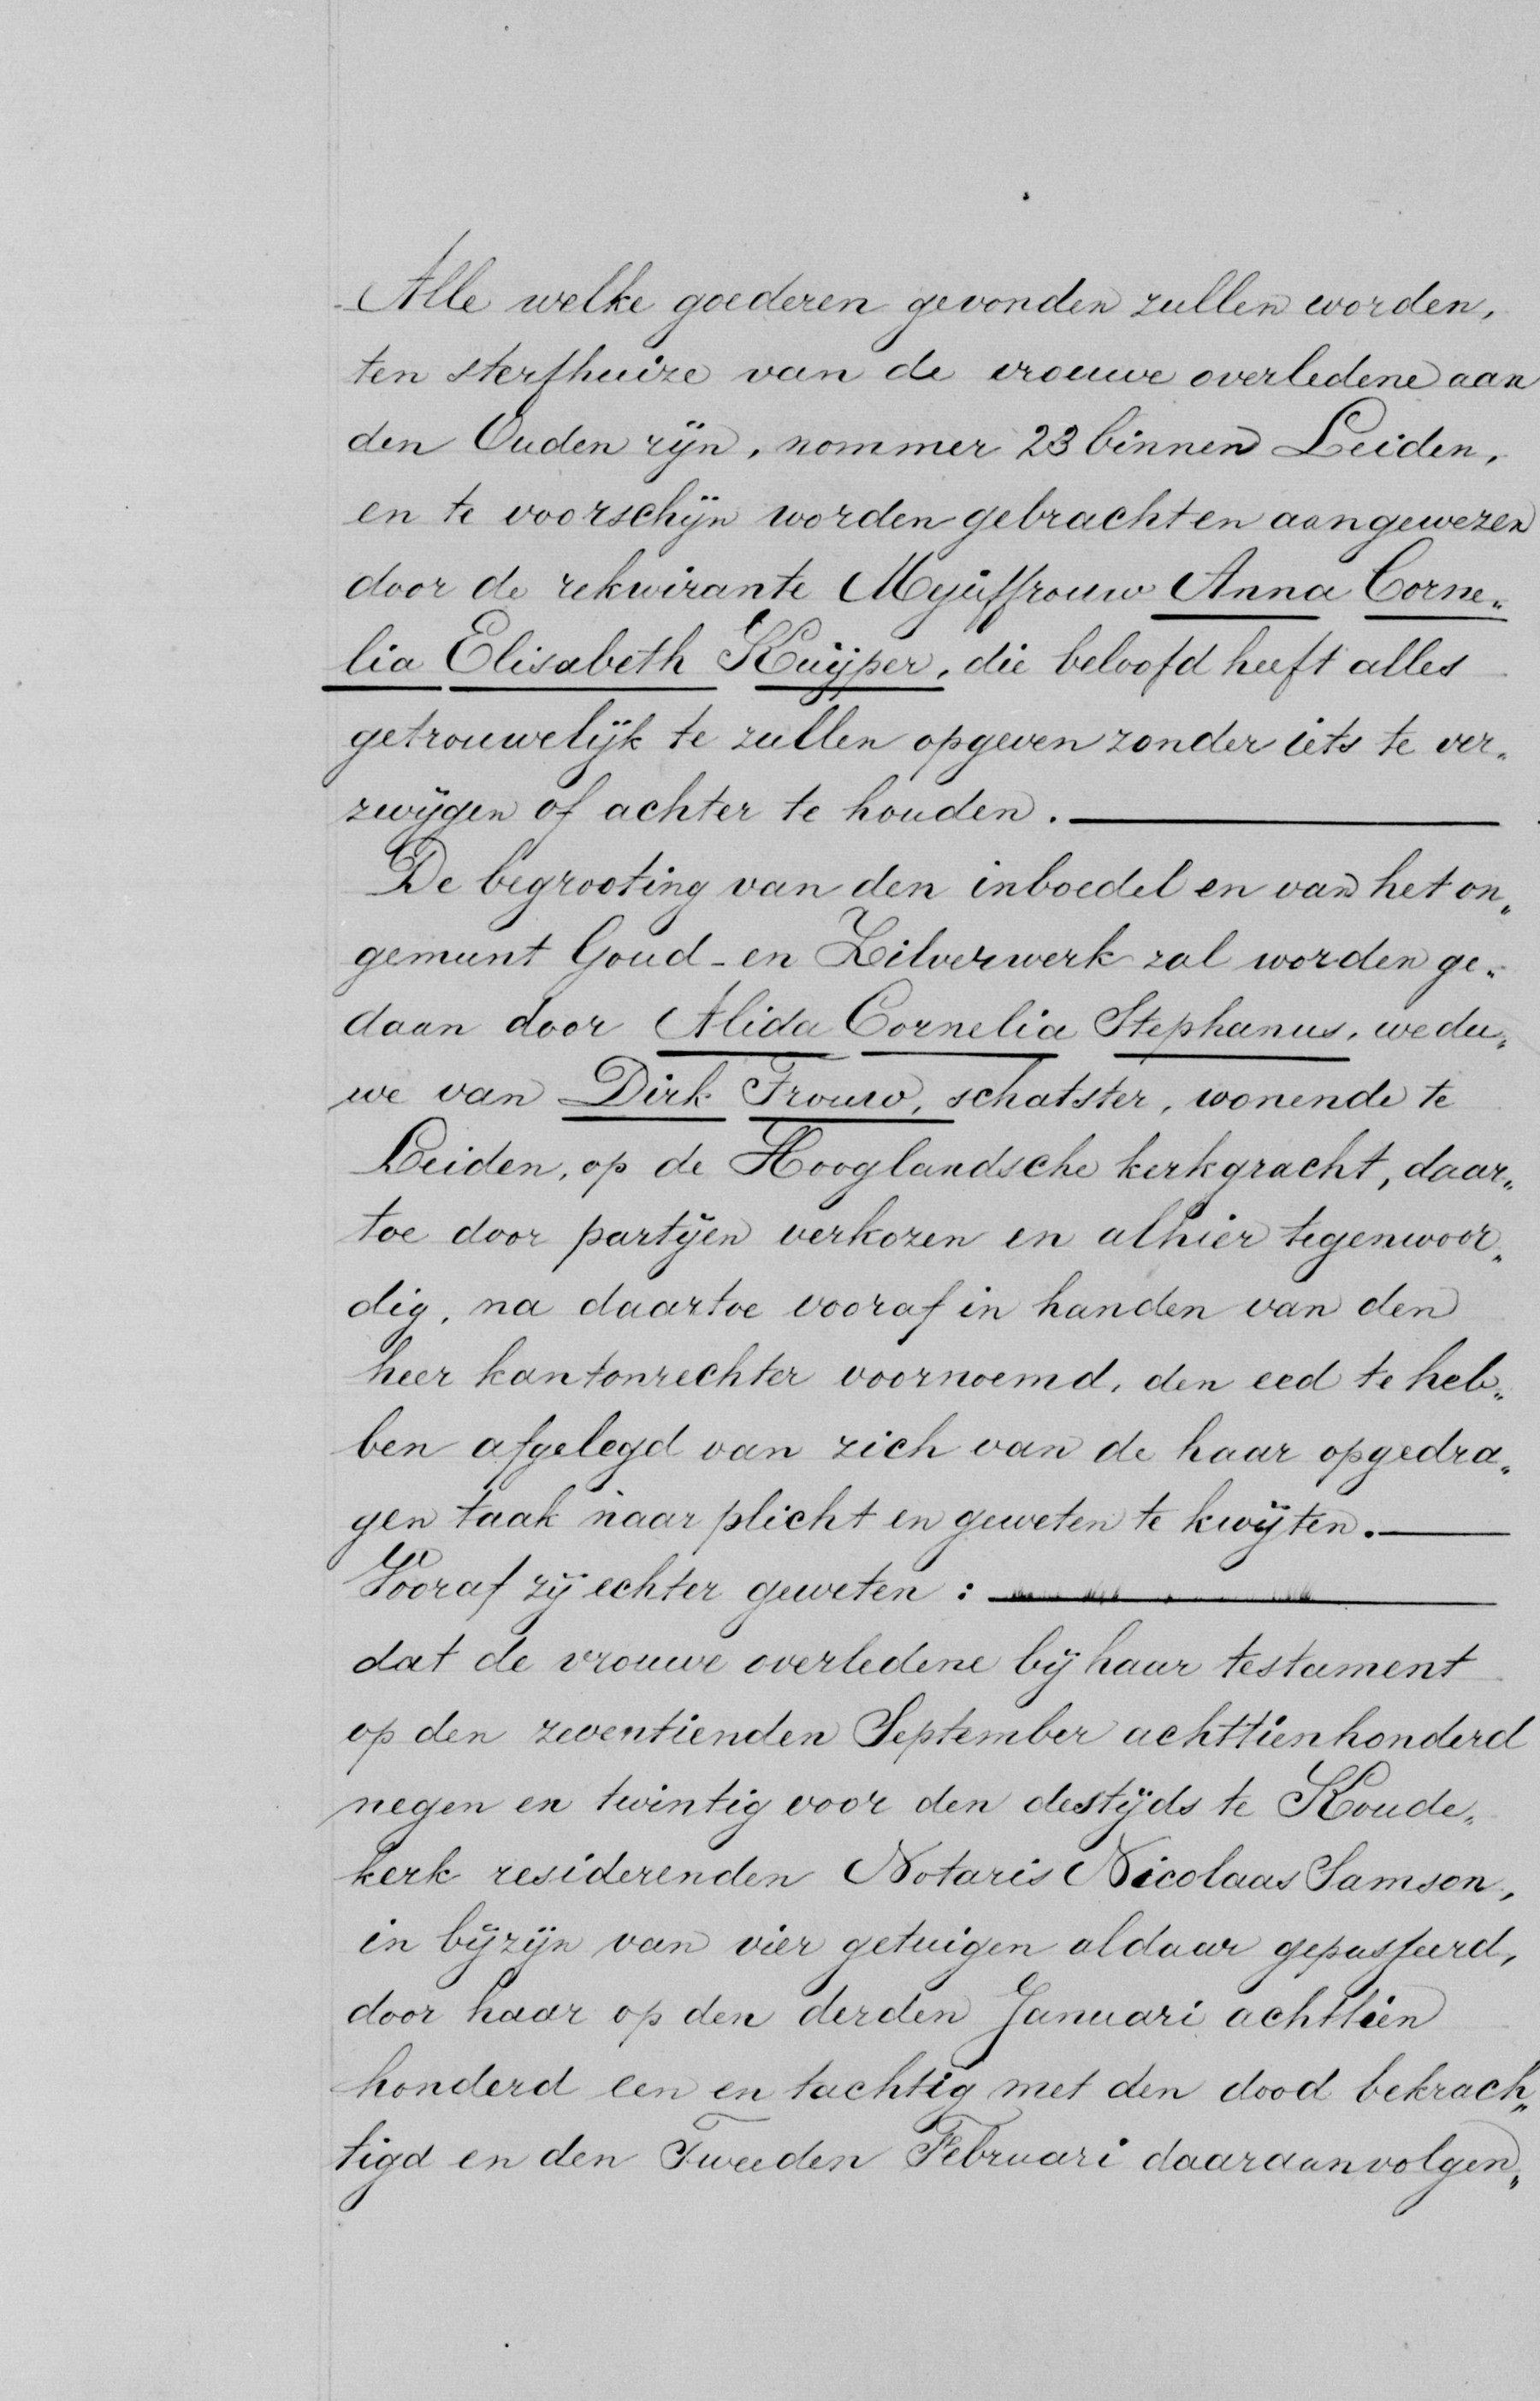 Alle welke goederen gevonden zullen worden,
ten sterfhuize van de vrouwe overledene aan
den Ouden rijn, nommer 23 binnen Leiden,
en te voorschijn worden gebracht en aangewezen
door de rekwirante Mejuffrouw Anna Corne„
lia Elisabeth Kuijper, die beloofd heeft alles
getrouwelijk te zullen opgeven zonder iets te ver„
zwijgen of achter te houden.
De begrooting van den inboedel en van het on„
gemunt Goud- en Zilverwerk zal worden ge„
daan door Alida Cornelia Stephanus, wedu„
we van Dirk Trouw, schatster, wonende te
Leiden, op de Hooglandsche kerkgracht, daar„
toe door partijen verkozen en alhier tegenwoor„
dig, na daartoe vooraf in handen van den
heer kantonrechter voornoemd, den eed te heb„
ben afgelegd van zich van de haar opgedra„
gen taak naar plicht en geweten te kwijten.
Vooraf zij echter geweten:
dat de vrouwe overledene bij haar testament
op den zeventienden September achttienhonderd
negen en twintig voor den destijds te Koude„
kerk residerenden Notaris Nicolaas Samson,
in bijzijn van vier getuigen aldaar gepasseerd,
door haar op den derden Januari achttien
honderd een en tachtig met den dood bekrach„
tigd en den Tweeden Februari daaraanvolgen„